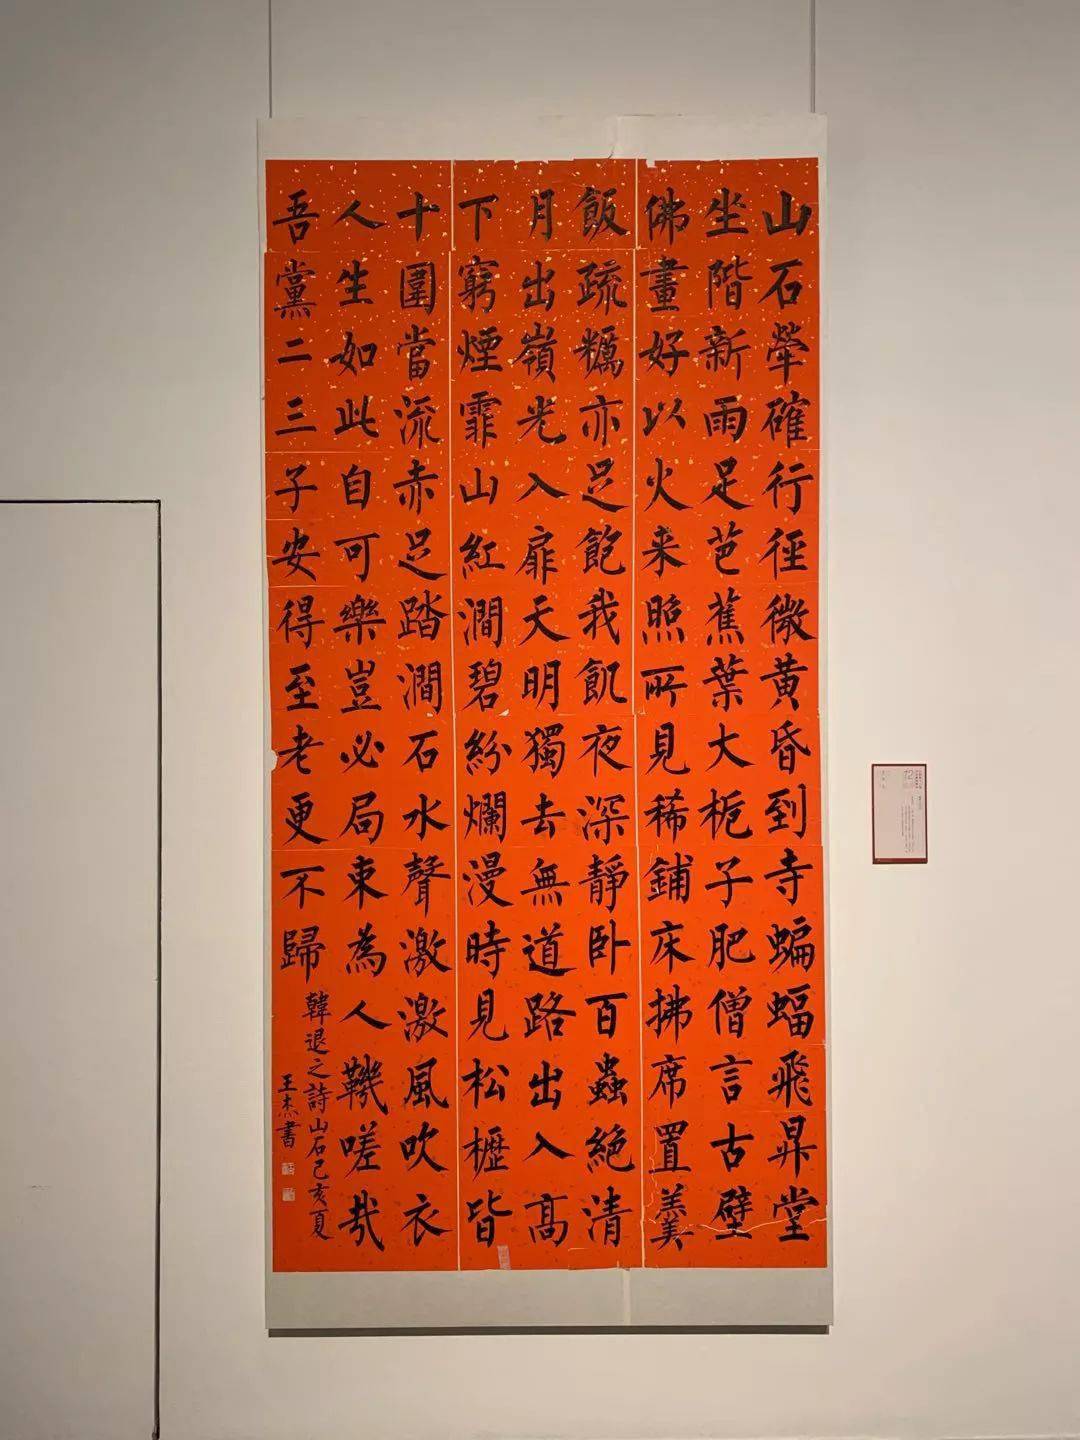 山石犖確行徑微黃昏到寺蝙蝠飛昇堂
坐階新雨足芭蕉葉大梔子肥僧言古壁
佛畫好以火来照所見稀鋪床拂席置羹
飯疏糲亦足飽我飢夜深靜卧百蟲絕清
月出嶺光入扉天明獨去無道路出入高
下窮煙霏山紅澗碧紛爛漫時見松櫪皆
十圍當流赤足踏澗石水聲激激風吹衣
人生如此自可樂豈必局束為人鞿嗟哉
吾黨二三子安得至老更不歸
韓退之詩山石己亥夏
王杰書